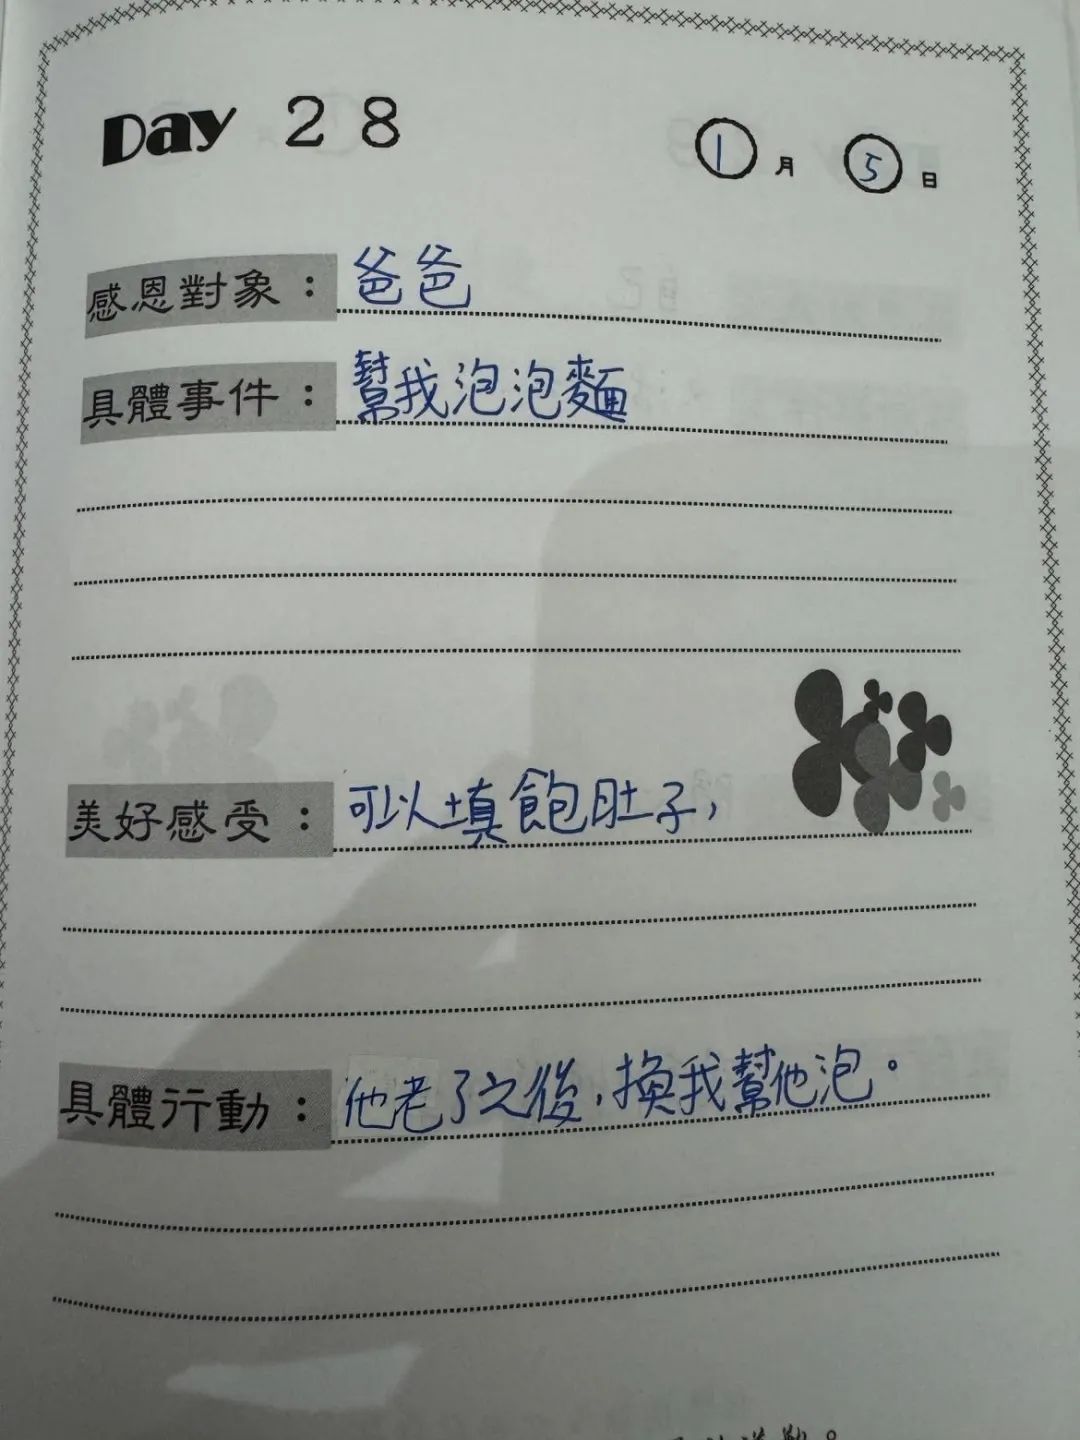 Day 28 1月5日
感恩對象：爸爸
具體事件：幫我泡泡麵
美好感受：可以填飽肚子，
具體行動：他老了之後，換我幫他泡。